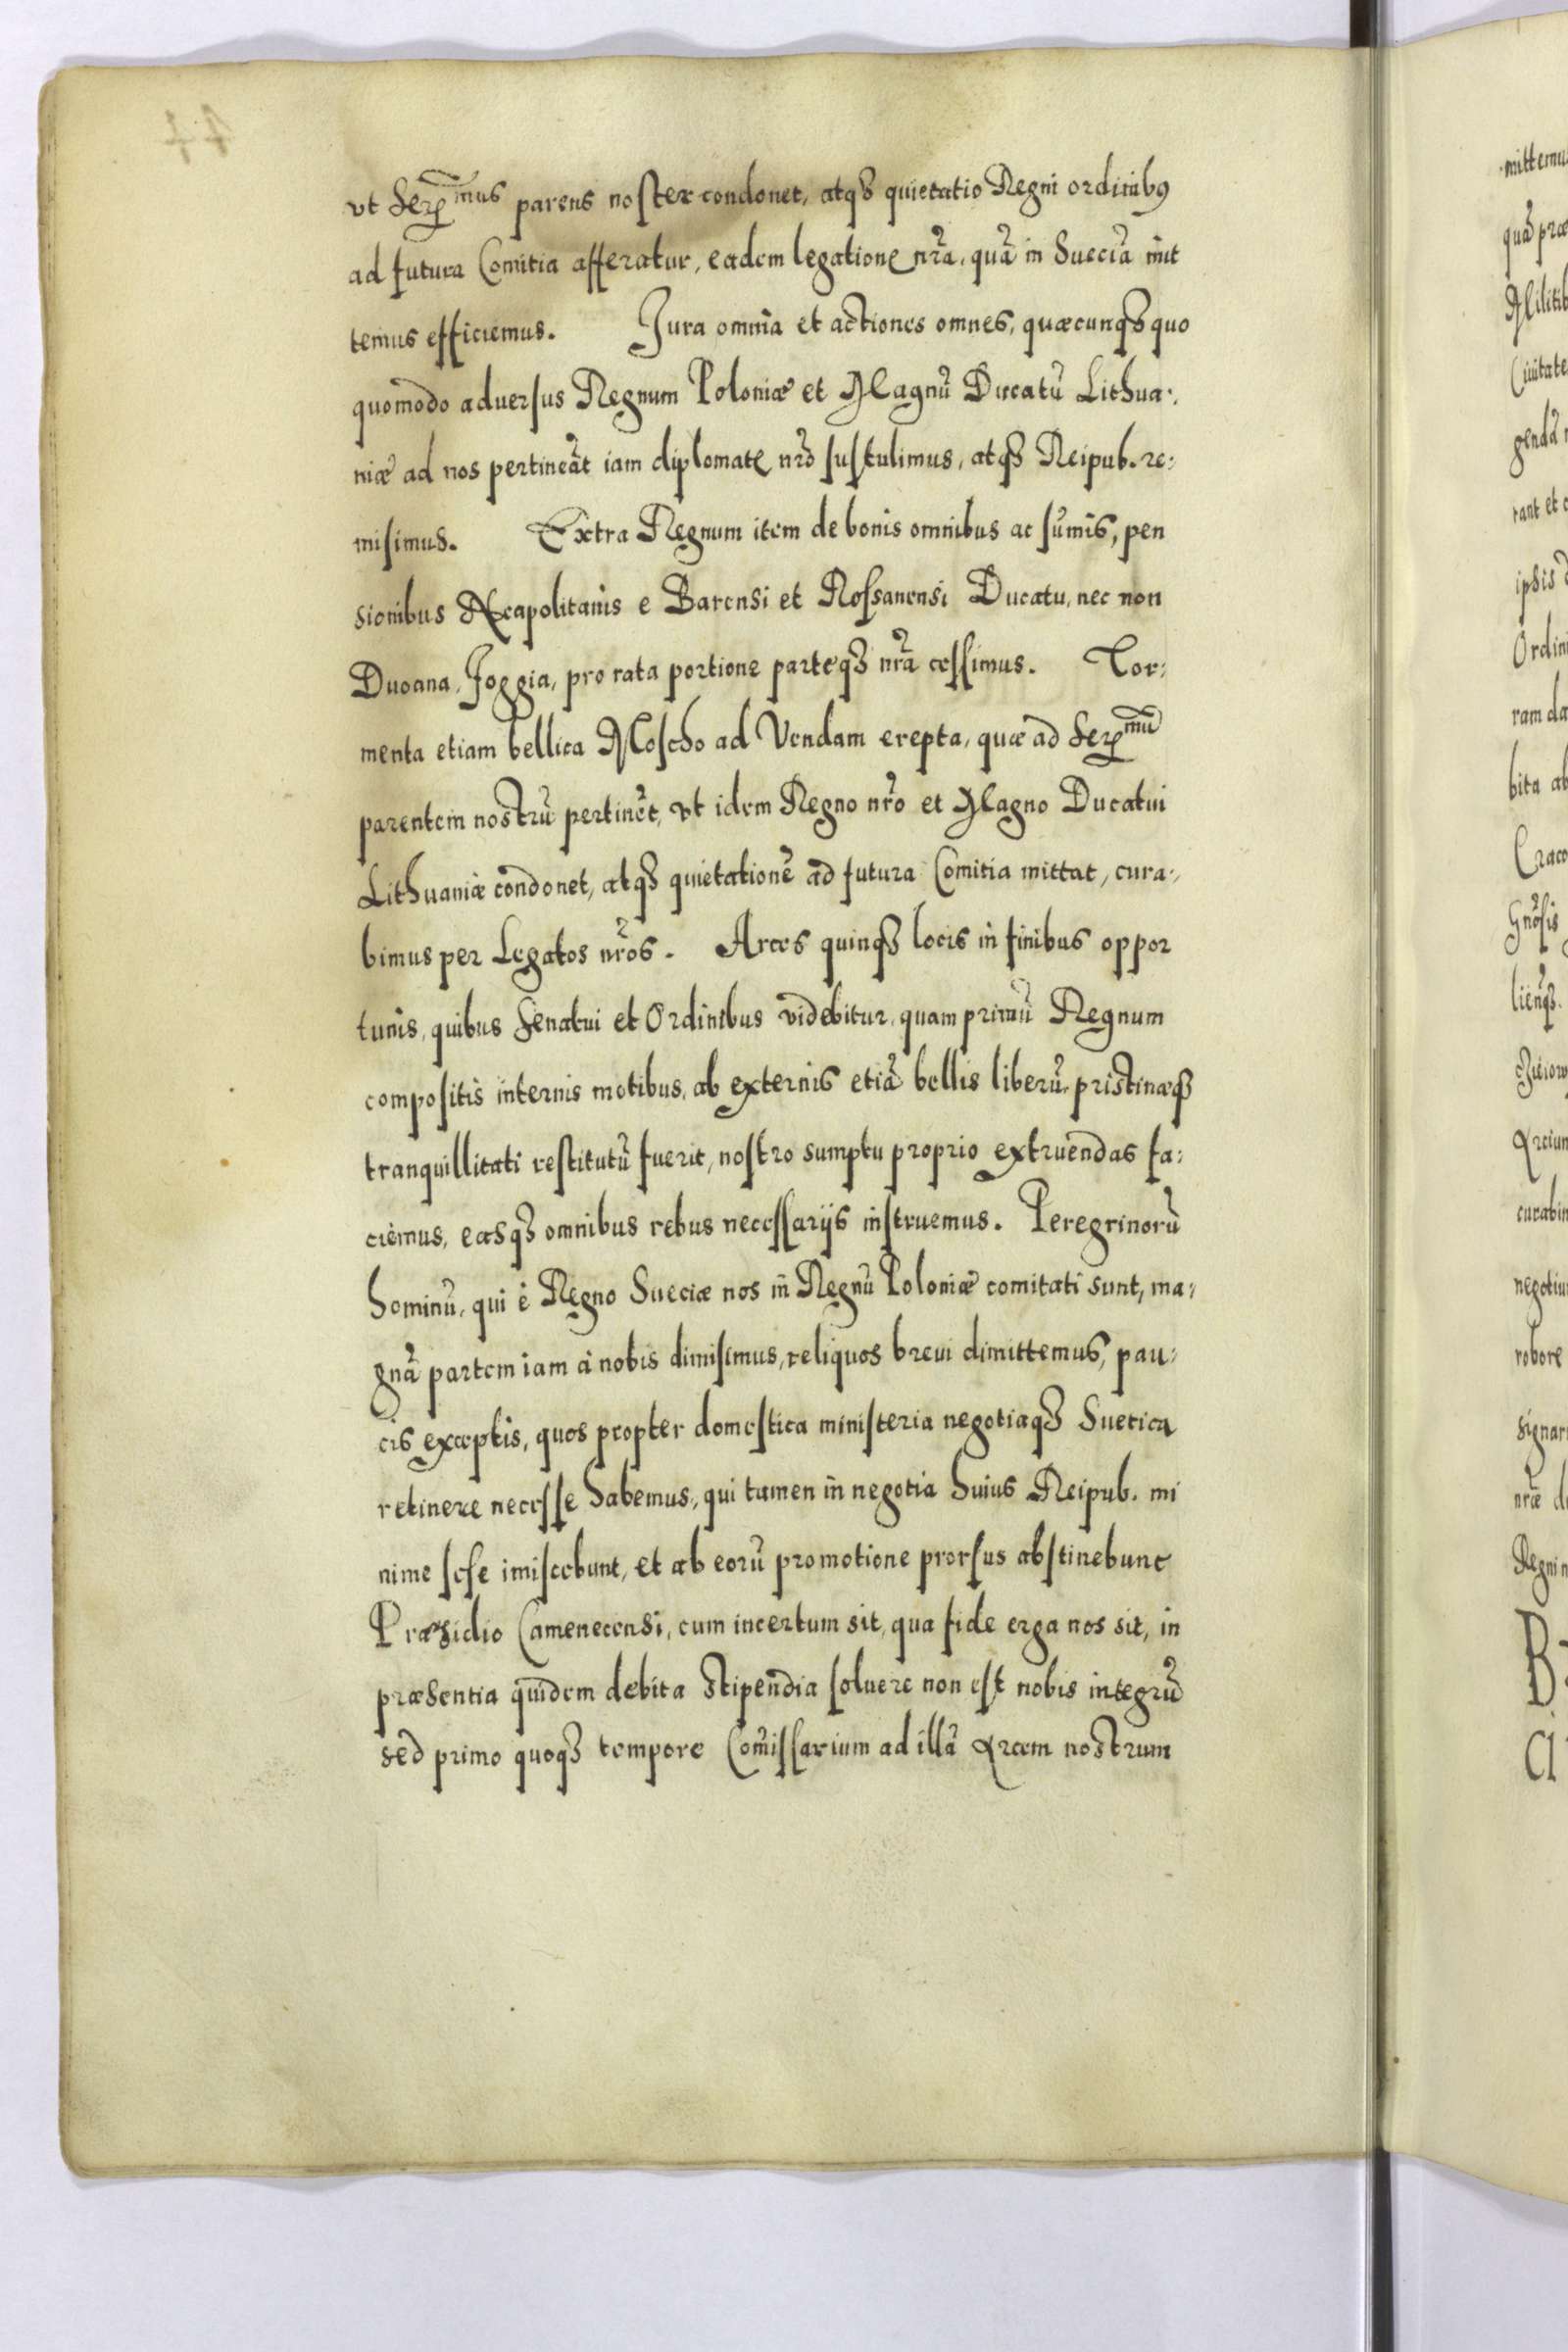 vt Ser̃mus parens noster condonet, atqȝ quietatio Regni ordinibꝰ
ad futura Comitia afferatur, eadem legatione nr̃a, quã in Sueciã mit
temus efficiemus. Jura omnia et actiones omnes, quæcunqȝ quo
quomodo aduersus Regnum Poloniæ et Magnũ Ducatũ Lithua:
niæ ad nos pertineãt iam diplomate nr̃o sustulimus, atqȝ Reipub. re:
misimus. Extra Regnum item de bonis omnibus ac sum̃is, pen
sionibus Neapolitanis e Barensi et Rossanensi Ducatu, nec non
Duoana, Foggia, pro rata portione parteqȝ nr̃a cessimus. Tor:
menta etiam bellica Moscho ad Vendam erepta, quæ ad Ser̃mũ
parentem nostrũ pertinẽt, vt idem Regno nr̃o et Magno Ducatui
Lithuaniæ condonet, atqȝ quietationẽ ad futura Comitia mittat, cura:
bimus per Legatos nr̃os. Arces quinqȝ locis in finibus oppor
tunis, quibus Senatui et Ordinibus videbitur, quam primũ Regnum
compositis internis motibus, ab externis etiã bellis liberũ, pristinæqȝ
tranquillitati restitutũ fuerit, nostro sumptu proprio extruendas fa:
ciemus, easqȝ omnibus rebus necessarijs instruemus. Peregrinorũ
hominũ, qui è Regno Sueciæ nos in Regnũ Poloniæ comitati sunt, ma:
gnã partem iam à nobis dimisimus, reliquos breui dimittemus, pau:
cis exceptis, quos propter domestica ministeria negotiaqȝ Suetica
retinere necesse habemus, qui tamen in negotia huius Reipub. mi
nime sese im̃iscebunt, et ab eorũ promotione prorsus abstinebunt
Præsidio Camenecensi, cum incertum sit, qua fide erga nos sit, in
præsentia quidem debita stipendia soluere non est nobis integrũ
sed primo quoqȝ tempore Com̃issarium ad illã Arcem nostrum